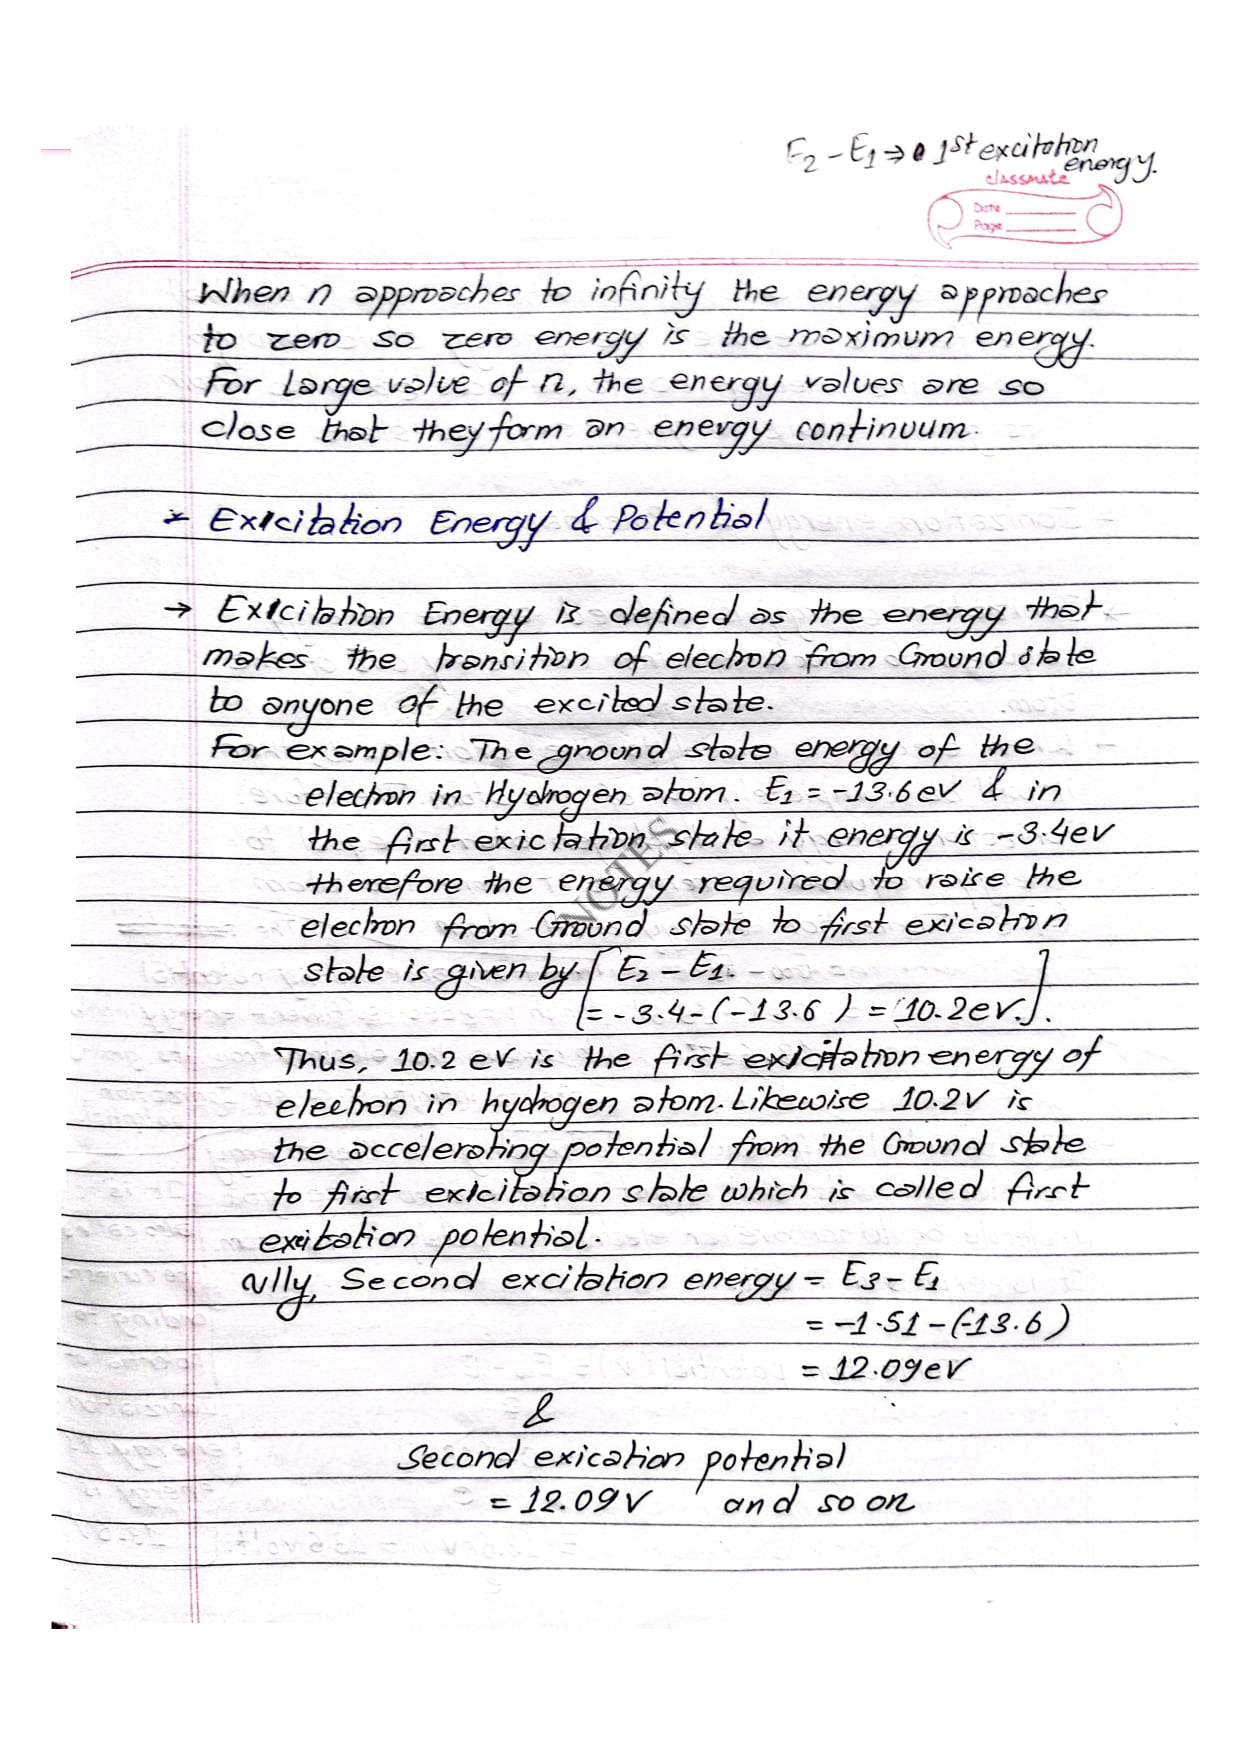 E2 - E1 → 1st excitation
energy.
classmate
Date
Page
When n approaches to infinity the energy approaches
to zero so zero energy is the maximum energy.
For Large value of n, the energy values are so
close that they form an energy continuum.
* Exicitation Energy & Potential
→ Exicitation Energy is defined as the energy that
makes the transition of electron from Ground state
to anyone of the excited state.
For example: The ground state energy of the
electron in Hydrogen atom. E1 = -13.6eV & in
the first exictation state it energy is -3.4ev
therefore the energy required to raise the
electron from Ground state to first exication
state is given by [ E2 - E1.
= -3.4-(-13.6) = 10.2ev.].
Thus, 10.2 eV is the first exicitation energy of
electron in hydrogen atom. Likewise 10.2V is
the accelerating potential from the Ground state
to first exicitation state which is called first
excitation potential.
∿lly, Second excitation energy = E3 - E1
= -1.51-(-13.6)
= 12.09eV
&
Second exication potential
= 12.09V and so on
NOTES